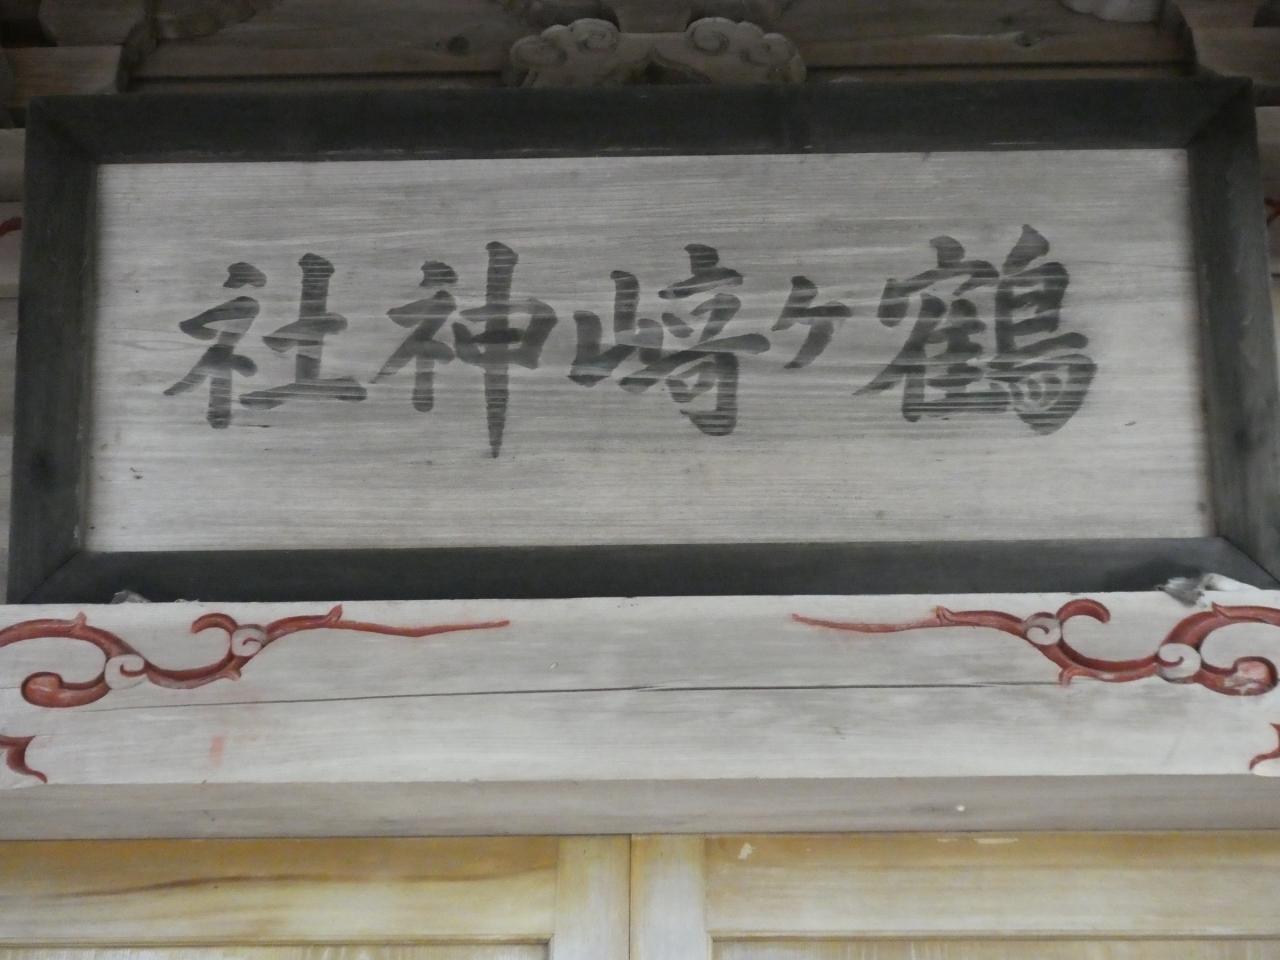 鶴ヶ﨑神社